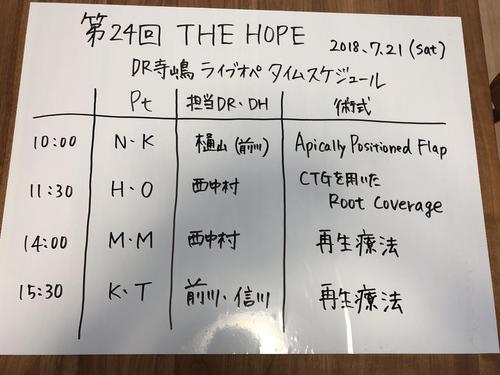 第24回 THE HOPE
2018.7.21(Sat)
DR寺嶋 ライブオペ タイムスケジュール
Pt 担当DR・DH 術式
10:00 N・K 樋山(前川) Apically Positioned Flap
11:30 H・O 西中村 CTGを用いた
Root Coverage
14:00 M・M 西中村 再生療法
15:30 K・T 前川・信川 再生療法